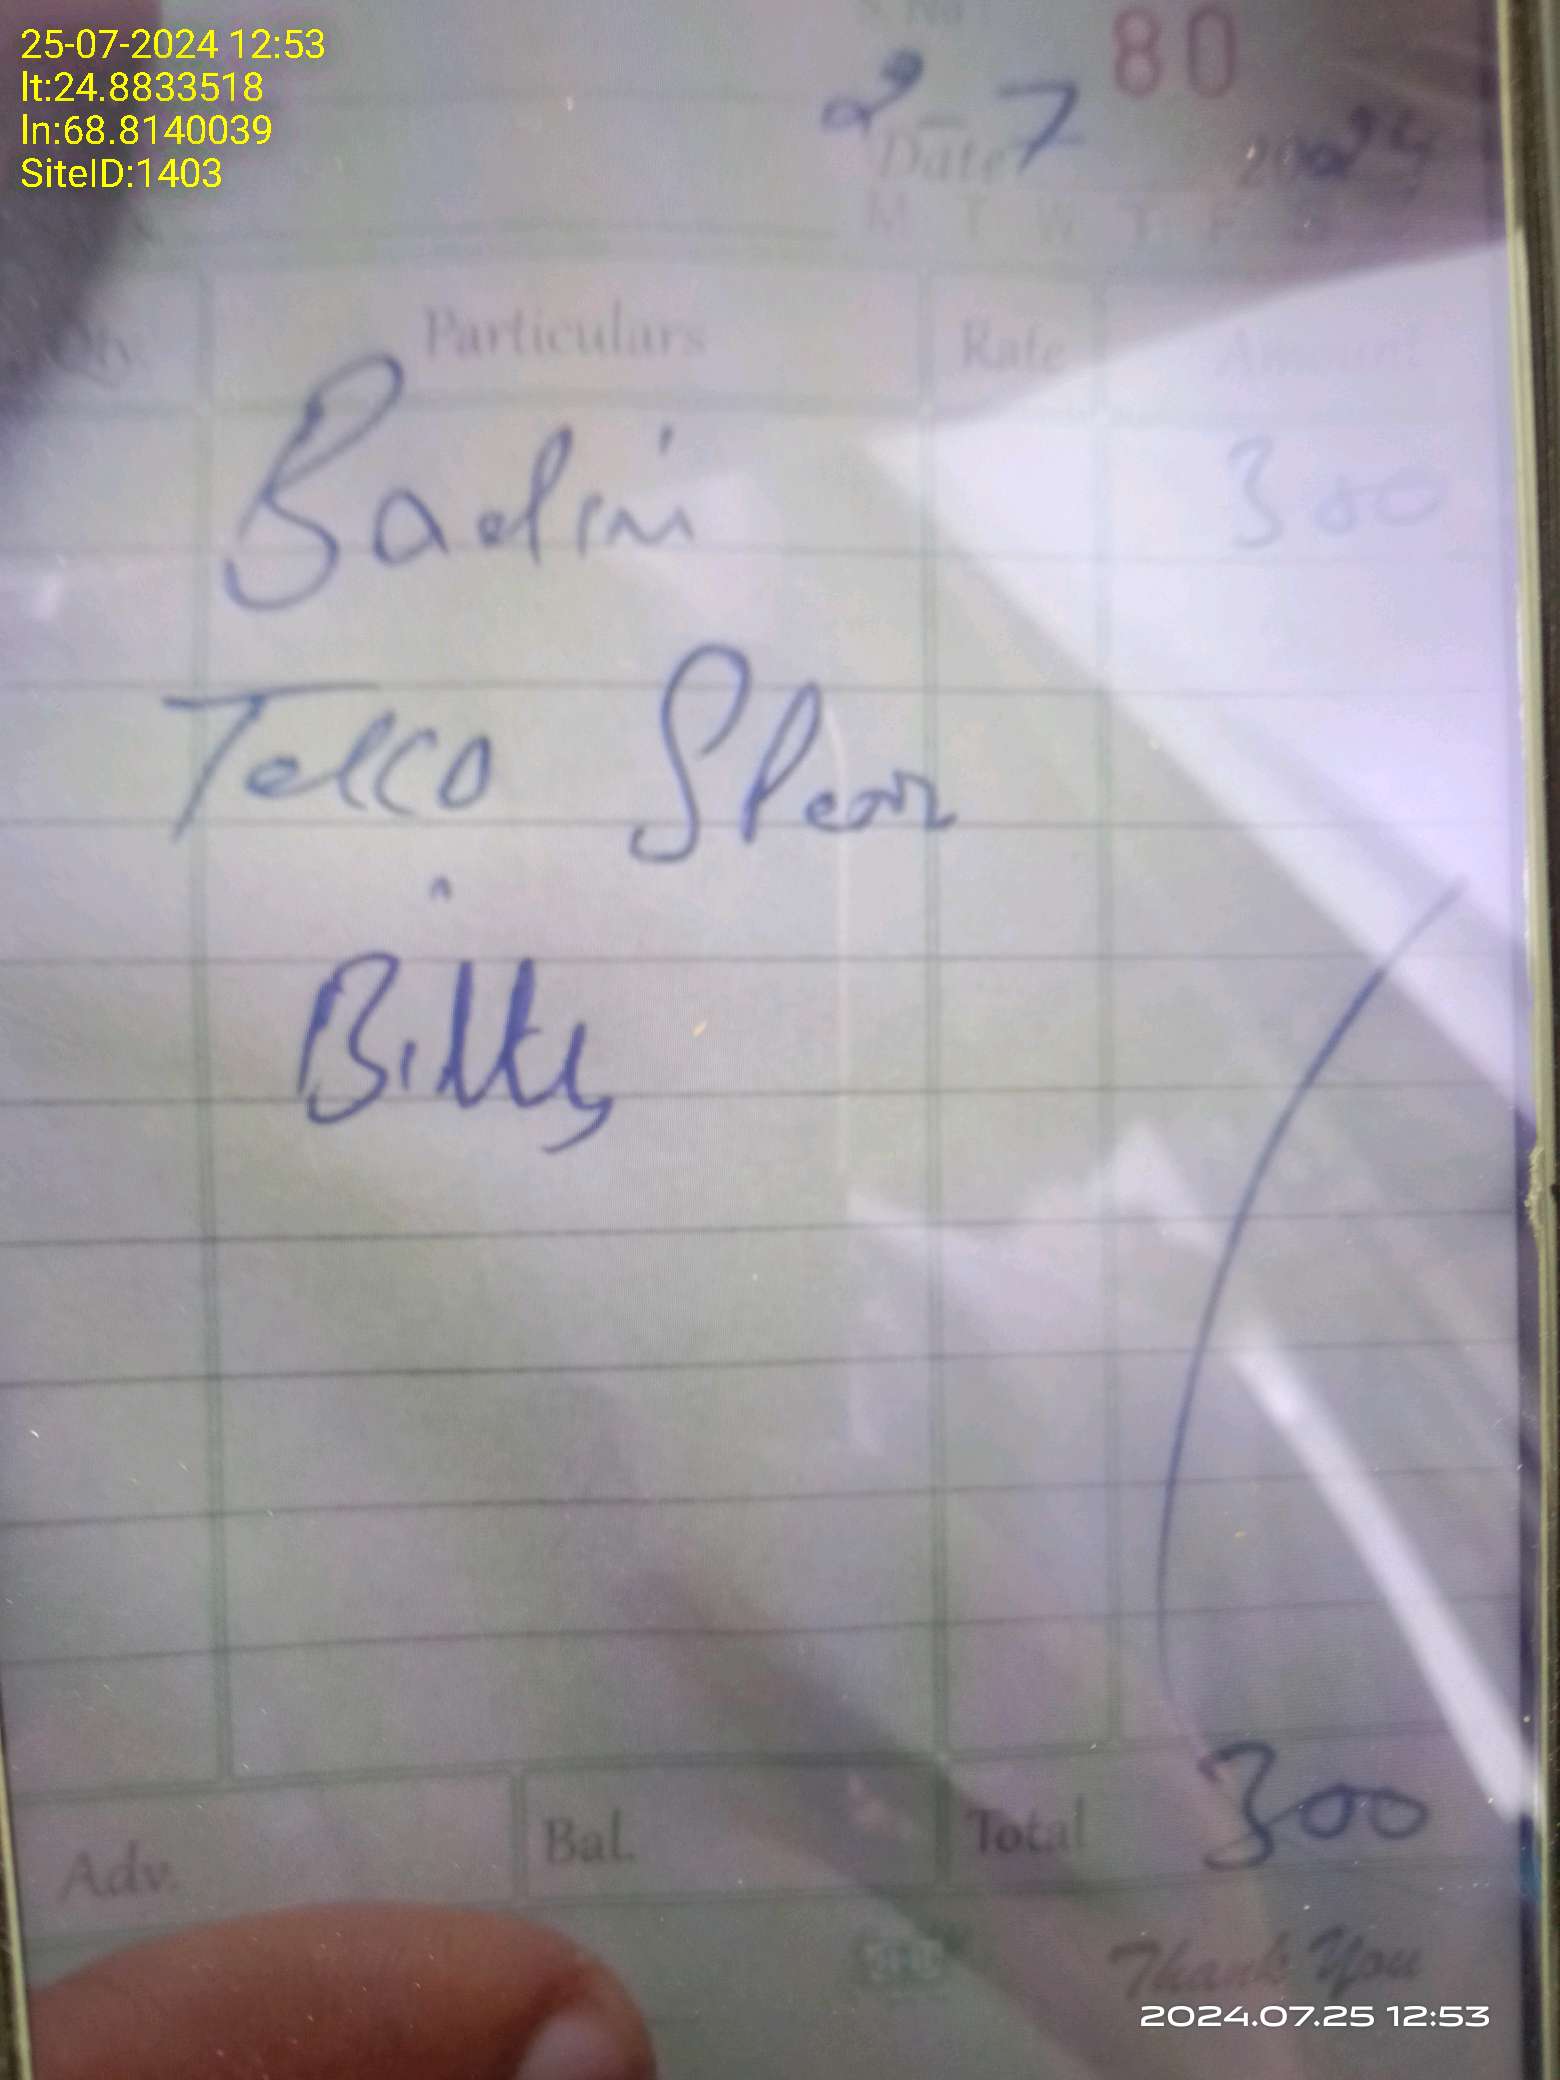 25-07-2024 12:53
lt:24.8833518
ln:68.8140039
SiteID:1403
S.No 80
2-7
Date 2024
M T W T F
Qty. Particulars Rate Amount
Badin 300
Telco
Bilty
Adv. Bal. Total 300
Thank You
2024.07.25 12:53